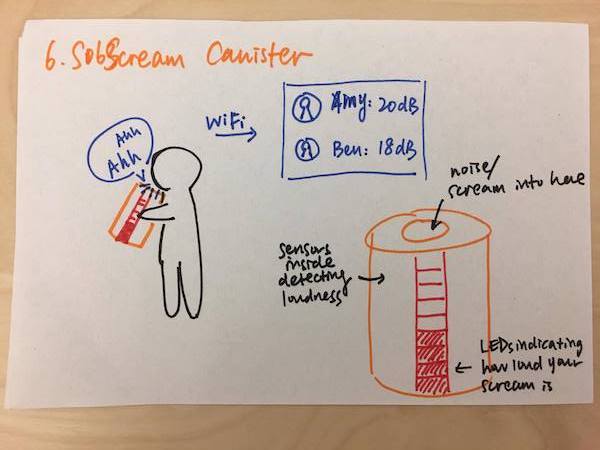 6. SobScream Canister
Ahh
Ahh
WiFi
Amy: 20dB
Ben: 18dB
noise/
scream into here
sensors
inside
detecting
loudness
LEDs indicating
how loud your
scream is